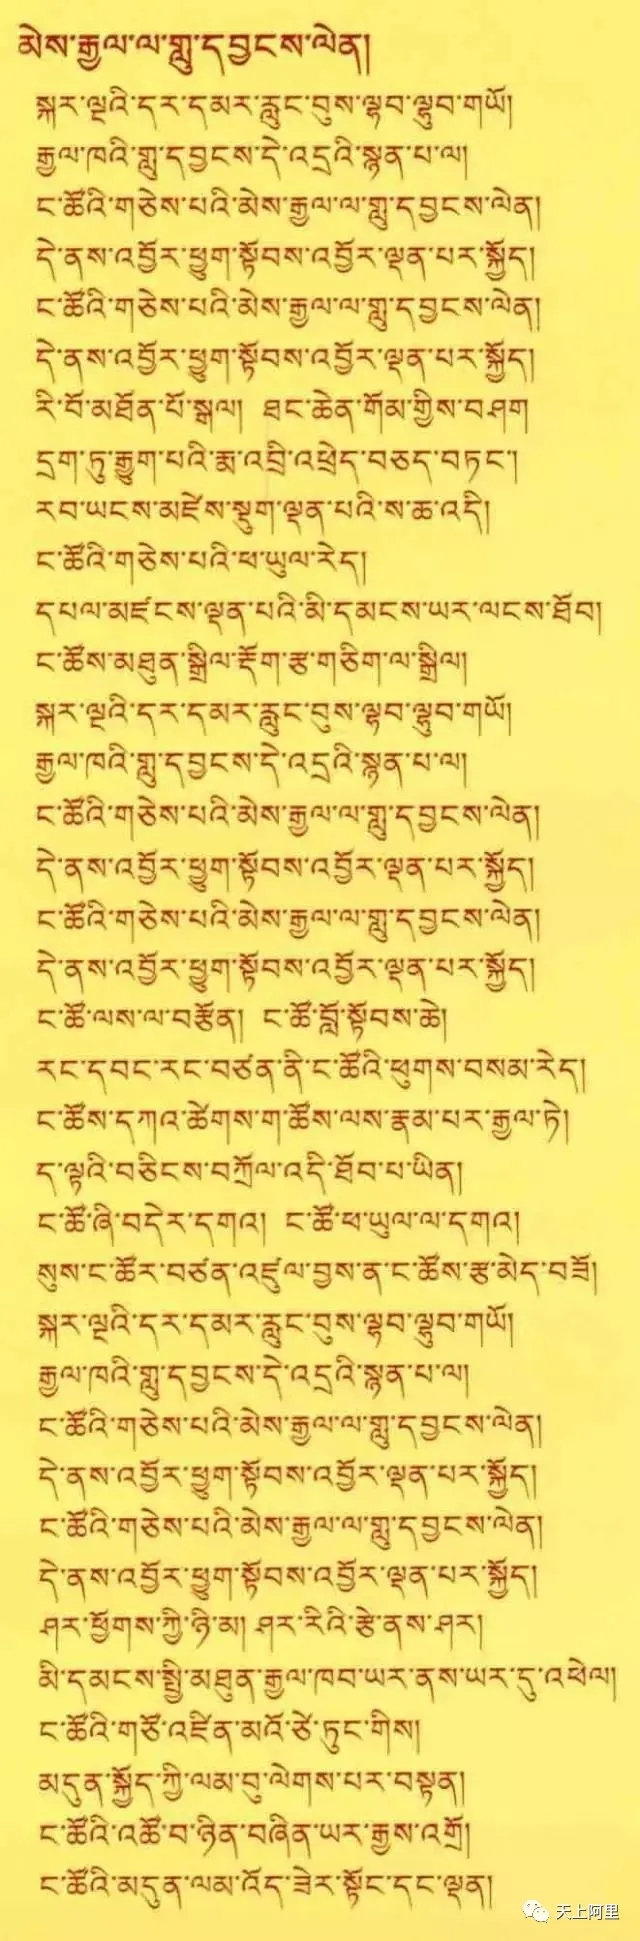 མེས་རྒྱལ་ལ་གླུ་དབྱངས་ལེན།
སྐར་ལྔའི་དར་དམར་རླུང་བུས་ལྷབ་ལྷུབ་གཡོ།
རྒྱལ་ཁའི་གླུ་དབྱངས་དེ་འདྲའི་སྙན་པ་ལ།
ང་ཚོའི་གཅེས་པའི་མེས་རྒྱལ་ལ་གླུ་དབྱངས་ལེན།
དེ་ནས་འབྱོར་ཕྱུག་སྟོབས་འབྱོར་ལྡན་པར་སྐྱོད།
ང་ཚོའི་གཅེས་པའི་མེས་རྒྱལ་ལ་གླུ་དབྱངས་ལེན།
དེ་ནས་འབྱོར་ཕྱུག་སྟོབས་འབྱོར་ལྡན་པར་སྐྱོད།
རི་བོ་མཐོན་པོ་སྒྲལ། ཐང་ཆེན་གོམ་གྱིས་བཤག
དྲག་ཏུ་རྒྱུག་པའི་རྨ་འབྲི་འཕྲེད་བཅད་བཏང་།
རབ་ཡངས་མཛེས་སྡུག་ལྡན་པའི་ས་ཆ་འདི།
ང་ཚོའི་གཅེས་པའི་ཕ་ཡུལ་རེད།
དཔལ་མཛངས་ལྡན་པའི་མི་དམངས་ཡར་ལངས་ཐོབ།
ང་ཚོས་མཐུན་སྒྲིལ་རྡོག་རྩ་གཅིག་ལ་སྒྲིལ།
སྐར་ལྔའི་དར་དམར་རླུང་བུས་ལྷབ་ལྷུབ་གཡོ།
རྒྱལ་ཁའི་གླུ་དབྱངས་དེ་འདྲའི་སྙན་པ་ལ།
ང་ཚོའི་གཅེས་པའི་མེས་རྒྱལ་ལ་གླུ་དབྱངས་ལེན།
དེ་ནས་འབྱོར་ཕྱུག་སྟོབས་འབྱོར་ལྡན་པར་སྐྱོད།
ང་ཚོའི་གཅེས་པའི་མེས་རྒྱལ་ལ་གླུ་དབྱངས་ལེན།
དེ་ནས་འབྱོར་ཕྱུག་སྟོབས་འབྱོར་ལྡན་པར་སྐྱོད།
ང་ཚོ་ལས་ལ་བརྩོན། ང་ཚོ་བློ་སྟོབས་ཆེ།
རང་དབང་རང་བཙན་ནི་ང་ཚོའི་ཕུགས་བསམ་རེད།
ང་ཚོས་དཀའ་ཚེགས་ག་ཚོས་ལས་རྣམ་པར་རྒྱལ་ཏེ།
ད་ལྟའི་བཅིངས་བཀྲོལ་འདི་ཐོབ་པ་ཡིན།
ང་ཚོ་ཞི་བདེར་དགའ། ང་ཚོ་ཕ་ཡུལ་ལ་དགའ།
སུས་ང་ཚོར་བཙན་འཛུལ་བྱས་ན་ང་ཚོས་རྩ་མེད་བཟོ།
སྐར་ལྔའི་དར་དམར་རླུང་བུས་ལྷབ་ལྷུབ་གཡོ།
རྒྱལ་ཁའི་གླུ་དབྱངས་དེ་འདྲའི་སྙན་པ་ལ།
ང་ཚོའི་གཅེས་པའི་མེས་རྒྱལ་ལ་གླུ་དབྱངས་ལེན།
དེ་ནས་འབྱོར་ཕྱུག་སྟོབས་འབྱོར་ལྡན་པར་སྐྱོད།
ང་ཚོའི་གཅེས་པའི་མེས་རྒྱལ་ལ་གླུ་དབྱངས་ལེན།
དེ་ནས་འབྱོར་ཕྱུག་སྟོབས་འབྱོར་ལྡན་པར་སྐྱོད།
ཤར་ཕྱོགས་ཀྱི་ཉི་མ། ཤར་རིའི་རྩེ་ནས་ཤར།
མི་དམངས་སྤྱི་མཐུན་རྒྱལ་ཁབ་ཡར་ནས་ཡར་དུ་འཕེལ།
ང་ཚོའི་གཙོ་འཛིན་མའོ་ཙེ་ཏུང་གིས།
མདུན་སྐྱོད་ཀྱི་ལམ་བུ་ལེགས་པར་བསྟན།
ང་ཚོའི་འཚོ་བ་ཉིན་བཞིན་ཡར་རྒྱས་འགྲོ།
ང་ཚོའི་མདུན་ལམ་འོད་ཟེར་སྟོང་དང་ལྡན།
天上阿里